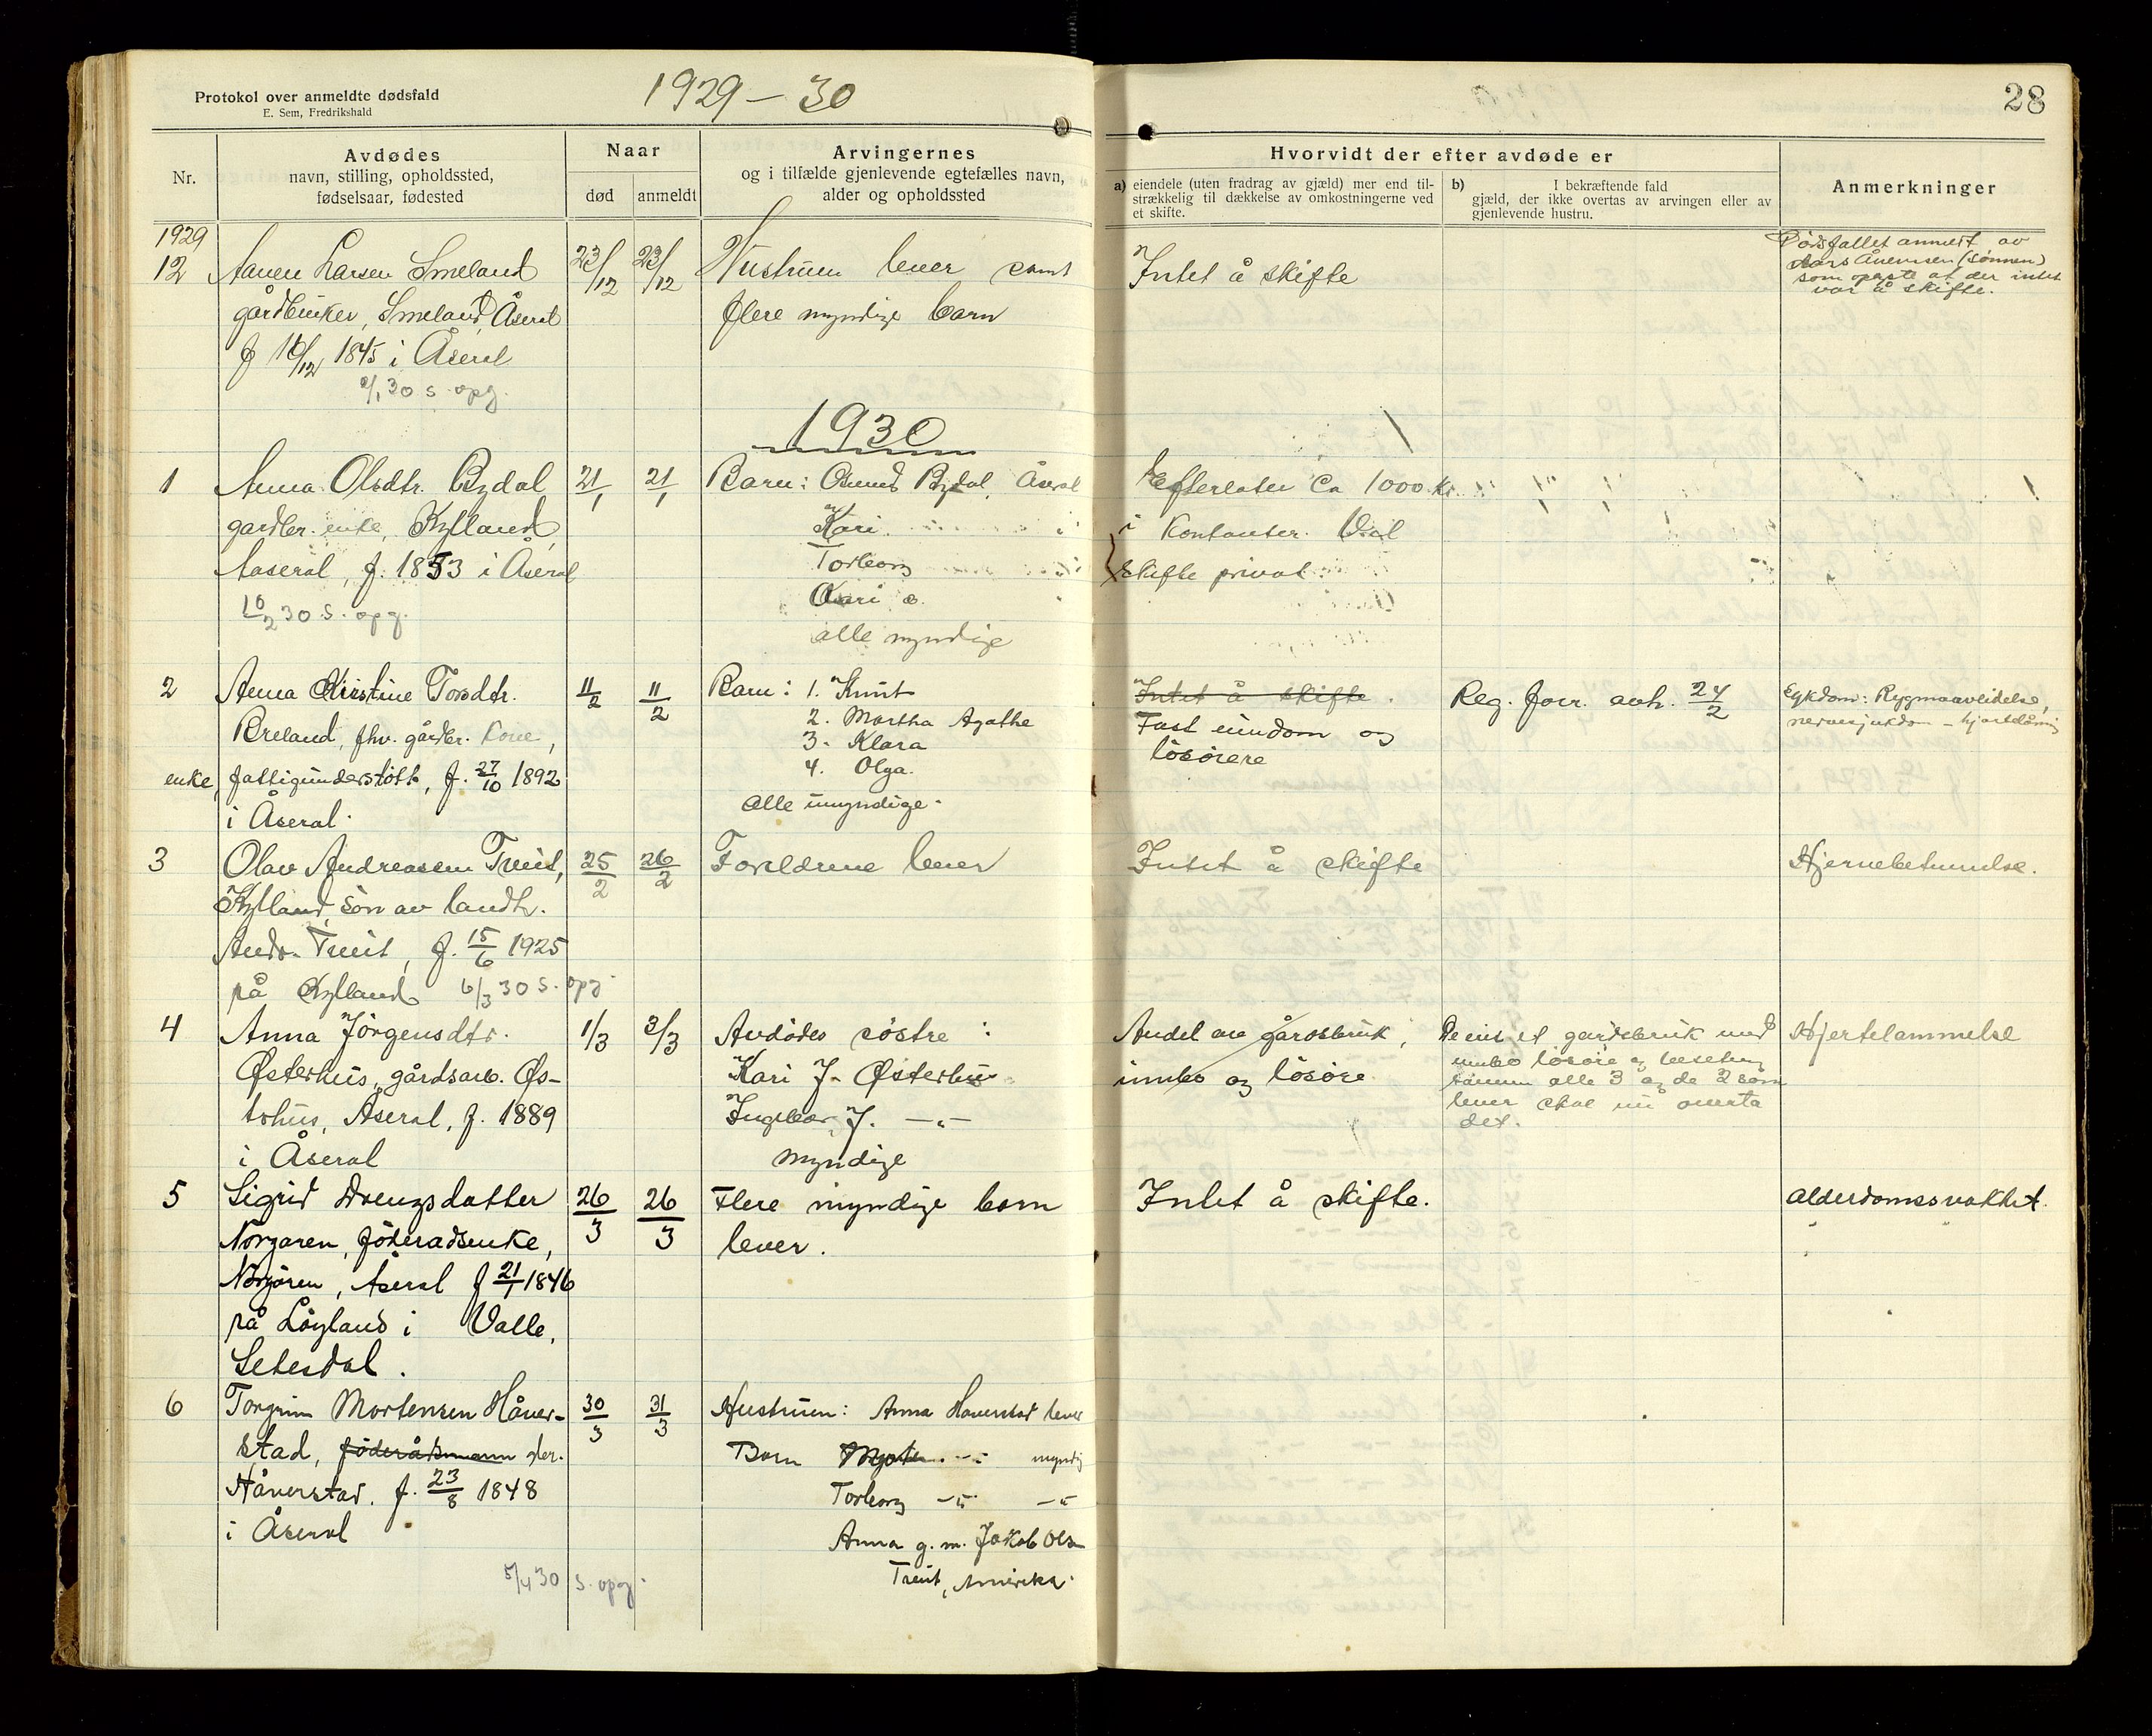 Protokol over anmeldte dødsfald
E. Sem, Fredrikshald
1929 – 30
28
Nr.
Avdødes
navn, stilling, opholdssted,
fødselsaar, fødested
Naar
død
anmeldt
Arvingernes
og i tilfælde gjenlevende egtefælles navn,
alder og opholdssted
Hvorvidt der efter avdøde er
a) eiendele (uten fradrag av gjæld) mer end til-
strækkelig til dækkelse av omkostningerne ved
et skifte.
b) I bekræftende fald
gjæld, der ikke overtas av arvingen eller av
gjenlevende hustru.
Anmerkninger
1929
12 Aanen Larsen Smeland 23/12 23/12 Hustruen lever samt
gårdbruker, Smeland, Åseral flere myndige barn
f 16/12 1845 i Åseral
/1 30 s. opg.
Intet å skifte
Dødsfallet anmeldt av
Lars Ånensen (sønnen)
som opgir at der intet
var å skifte.
1930
1 Anna Olsdtr. Bydal 21/1 21/1 Barn: Åsmund Bydal, Åseral
gardbr. enke, Kylland, Kari
Aaseral, f. 1853 i Åseral Torborg
10/2 30 s. opg.
alle myndige
Efterlater ca 1000 kr.
i kontanter. Vil
skifte privat.
2 Anna Kirstine Torsdtr. 11/2 11/2 Barn: 1. Knut
Breland, fhv. gårdbr. kone, 2. Martha Agathe
3. Klara
enke, fattigunderstøtt, f. 27/10 1892 4. Olga.
i Åseral. alle umyndige.
Intet å skifte.
Fast eiendom og
løsørere
Reg. forr. anh. 24/2
Sykdom: Rygmarvlidelse,
nervesjukdom –
3 Olav Andreassen Tveit, 25/2 26/2 Foreldrene lever
Kylland, søn av landh.
Andr. Tveit, f. 15/6 1925
på Kylland 6/3 30 s. opg.
Intet å skifte
Hjernebetennelse.
4 Anna Jørgensdtr. 1/3 3/3 Avdødes søstre:
Østerhus, gårdsarb. Øs- Kari J. Østerhus
terhus, Åseral, f. 1889 Ingebor J. –"–
i Åseral myndige
Andel av gårdsbruk,
innbo og løsøre
De eiet et gardsbruk med
innbo løsøre og besetning
sammen alle 3 og de 2 som
lever skal nu overta
det.
Hjertelammelse
5 Sigrid Drengsdatter 26/3 26/3 Flere myndige born
Norgaren, føderadsenke, lever.
Norgåren, Åseral f 21/1 1846
på Løyland i Valle,
Setesdal.
Intet å skifte.
Alderdomssvakhet.
6 Torgrim Mortensen Håver- 30/3 31/3 Hustruen: Anna Haverstad lever
stad, føderådsmann gbr. Born –"– myndig
Håverstad. f. 23/8 1848 Torborg –"– –"
i Åseral Anna g. m. Jakob Olsen
Tveit, Amerika.
5/4 30 s. opg.